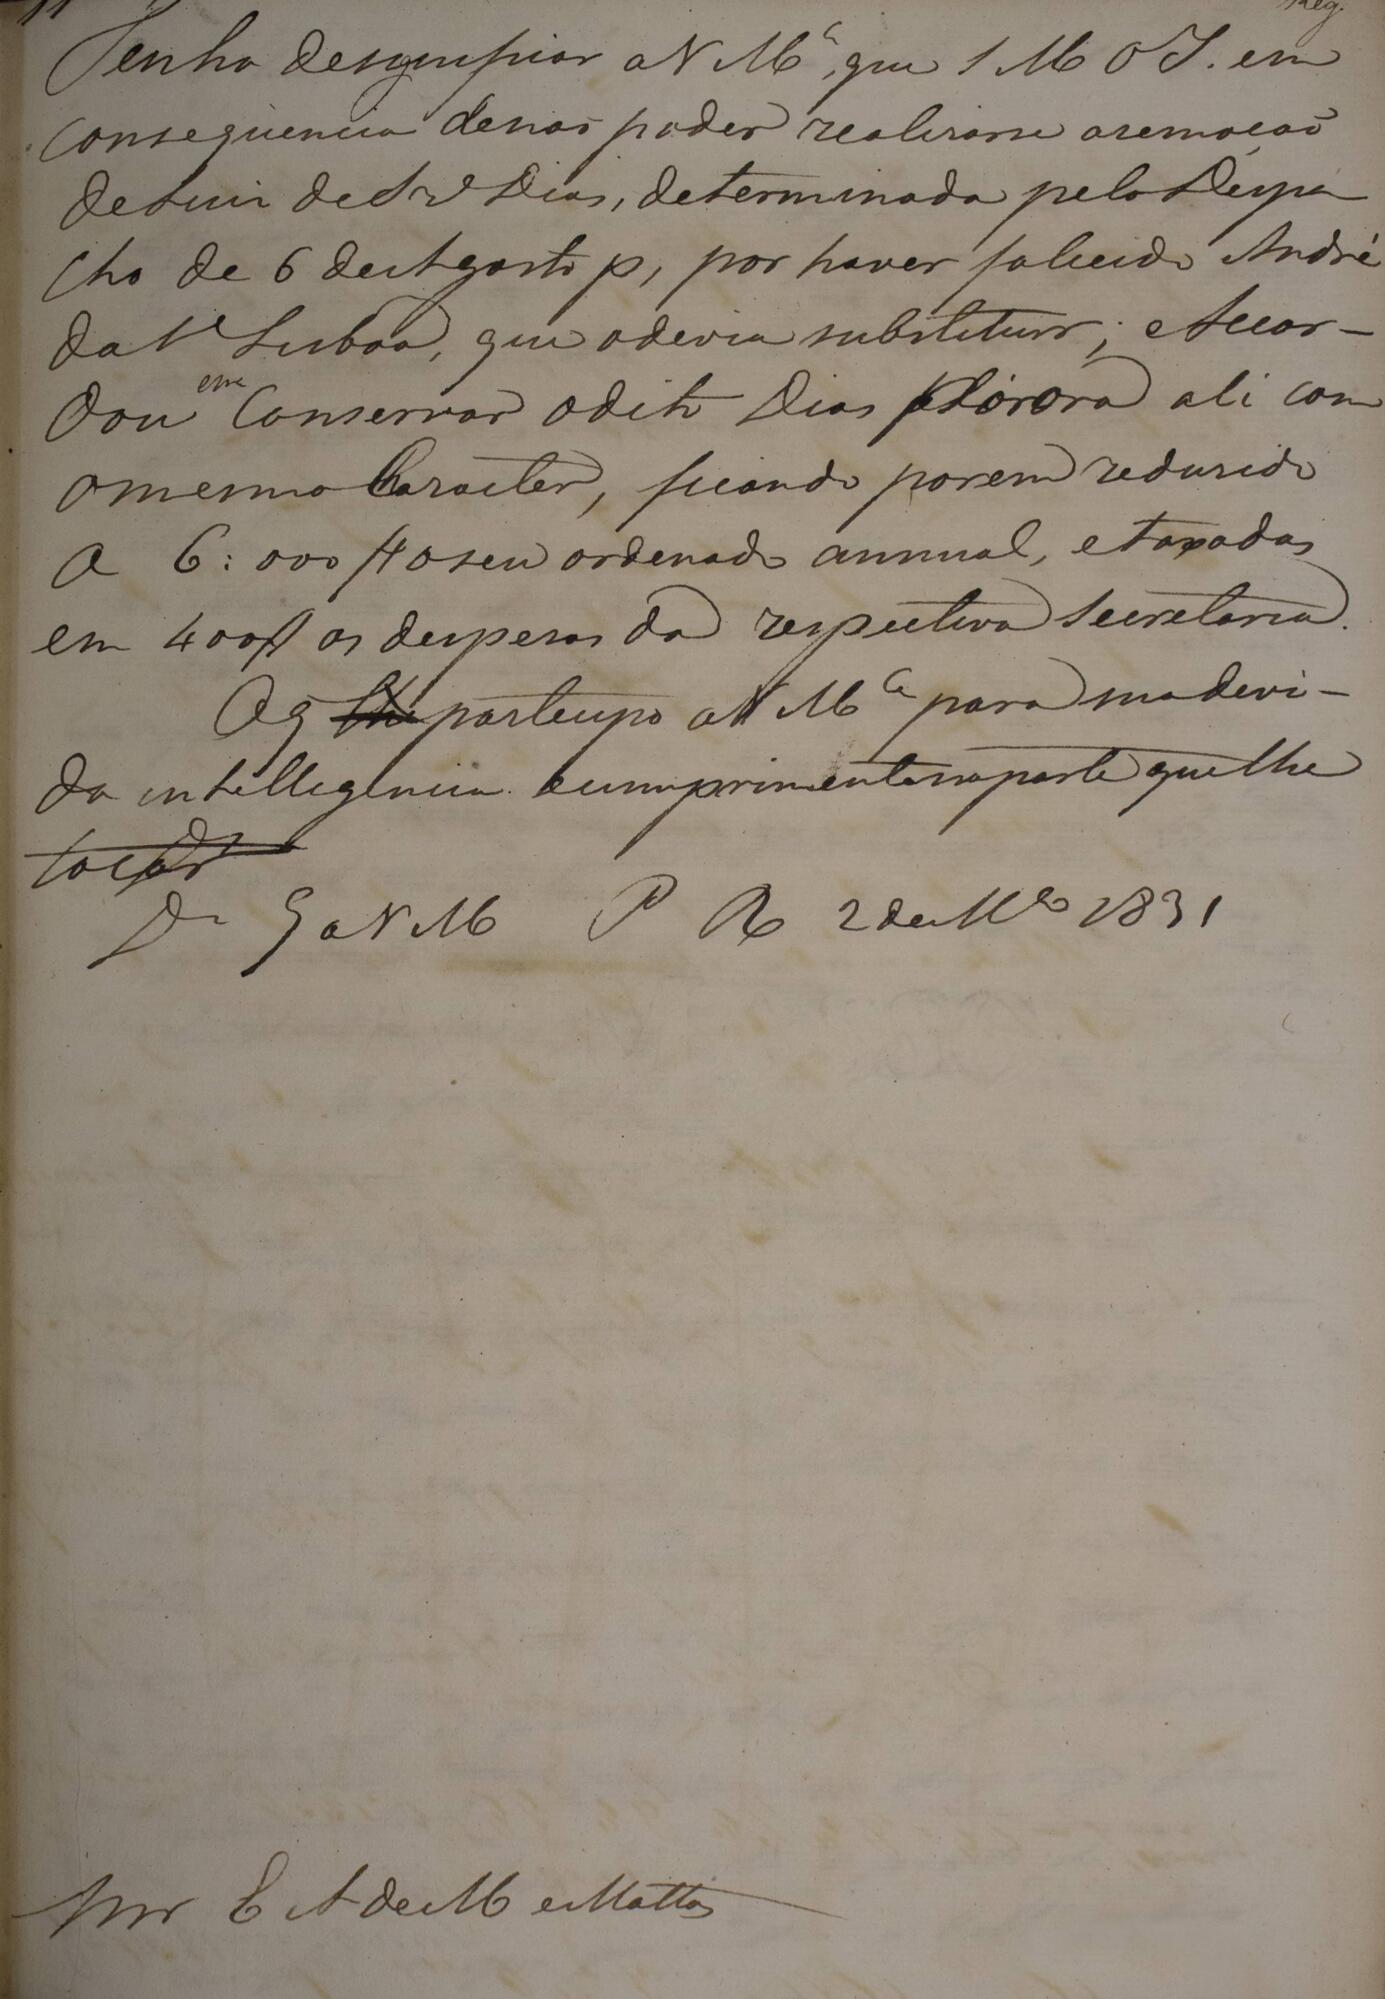 11 Reg.
Tenho de significar a V Mce, que S M O I. em
consequencia de não poder realisarse a remoção
de Luiz de Sza Dias, determinada pelo Despa
cho de 6 de Agosto p, por haver falecido André
da Lisboa, que o devia substituir; e Accor-
dou em Conservar o dito Dias por ora ali com
o mesmo Caracter, ficando porem redusido
a 6:000 # o seu ordenado annual, e taxadas
em 400# as despesas da respectiva Secretaria.
O q lhe participo a V Mce para sua devi-
da intelligencia e cumprimento na parte que lhe
tocar
Ds G a V M P R 2 de Mço 1831
Snr E A de M e Mattos